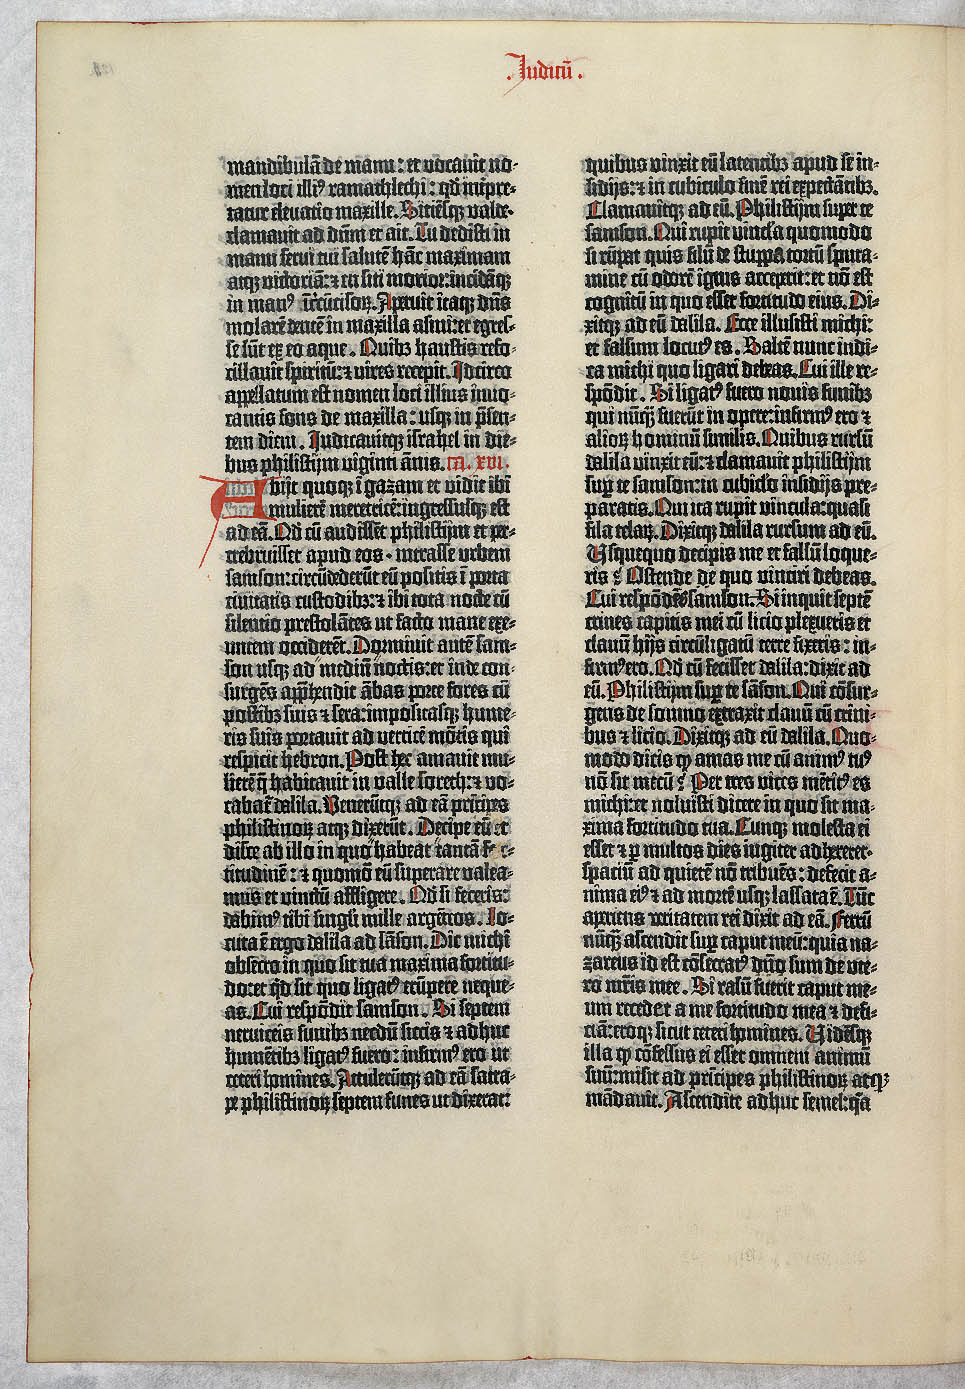 . Iudicū .
mandibulā de manu : et vocavit no-
men loci illiꝰ ramathlechi : qđ īnṕre-
tatur elevatio maxille. Sitiēsqꝫ valde-
clamavit ad dn̄m et ait. Tu dedisti in
manu servi tui salutē hāc maximam
atqꝫ victoriā: ⁊ en siti morior: incidāqꝫ
in manꝰ īcircūcisoꝝ. Aperuit itaqꝫ dn̄s
molarē dentē in maxilla asini: et egres-
se sūt ex eo aque. Quibꝫ haustis refo-
cillavit spiritū: ⁊ vires recepit. Idcirco
appellatum est nomen loci illius invo-
cantis fons de maxilla : usqꝫ in p̄sen-
tem diem. Iudicavitqꝫ israhel in die-
bus philistijm viginti ānis. ca. xvi.
Abijt quoqꝫ ī gazam et vidit ibi
mulierē meretricē: ingressusqꝫ est
ad eā. Qđ cū audissēt philistijm et ꝑ-
crebruisset apud eos · intrasse urbem
samson: circūdederūt eū positis ī porta
civitatis custodibꝫ: ⁊ ibi tota nocte cū
silentio prestolātes ut facto mane exe-
untem occiderēt. Dormivit autē sam-
son usqꝫ ad mediū noctis: et inde con-
surgēs apprehendit ābas porte fores cū
postibꝫ suis ⁊ sera: impositasqꝫ hume-
ris suis portavit ad verticē mōtis qui
respicit hebron. Post hec amavit mu-
lierē q̄ habitavit in valle sorech: ⁊ vo-
cabat̄ dalila. Venerūtqꝫ ad eā prīcipes
philistinoꝝ atqꝫ dixerūt. Decipe eū et
disce ab illo in quo habeat tantā for-
titudinē: ⁊ quomō eū superare valea-
mus et vinctū affligere. Qđ si feceris:
dabimꝰ tibi singuli mille argēteos. Lo-
cuta ē ergo dalila ad sāson. Dic michi
obsecro in quo sit tua maxima fortitu-
do: et q̄d sit quo ligatꝰ erūpere neque-
as. Cui respōdit samson. Si septem
nerviceis funibꝫ necdū siccis ⁊ adhuc
humētibꝫ ligatꝰ fuero : infirmꝰ ero ut
ceteri homines. Attulerūtqꝫ ad eā satra-
pe philistinoꝝ septem funes ut dixerat:
quibus vinxit eū latentibꝫ apud se in-
sidijs: ⁊ in cubiculo finē rei expectātibꝫ.
Clamavitqꝫ ad eū. Philistijm super te
samson. Qui rupit vincla quomodo
si rūpat quis filū de stuppa tortū sputa-
mine cū odorē ignis acceperit: et nō est
cognitū in quo esset fortitudo eius. Di-
xitqꝫ ad eū dalila. Ecce illusisti michi:
et falsum locutꝰ es. Saltē nunc indi-
ca michi quo ligari debeas. Cui ille re-
spōdit. Si ligatꝰ fuero novis funibꝫ
qui nūq̄ fuerūt in opere: infirmꝰ ero ⁊
alioꝝ hominū similis. Quibus rursū
dalila vinxit eū: ⁊ clamavit philistijm
suꝑ te samson: in cubiclo insidijs pre-
paratis. Qui ita rupit vincula: quasi
fila telaꝝ. Dixitqꝫ dalila rursum ad eū.
Usquequo decipis me et falsū loque-
ris ? Ostende de quo vinciri debeas.
Cui respōdens samson. Si inquit septē
crines capitis mei cū licio plexueris et
clavū hijs circūligatū terre fixeris : in-
firmꝰ ero. Qđ cū fecisset dalila: dixit ad
eū. Philistijm suꝑ te sāson. Qui cōsur-
gens de somno extraxit clavū cū crini-
bus ⁊ licio. Dixitqꝫ ad eū dalila. Quo-
modo dicis ꝙ amas me cū animꝰ tuꝰ
nō sit mecū ? Per tres vices mētitꝰ es
michi: et noluisti dicere in quo sit ma-
xima fortitudo tua. Cunqꝫ molesta ei
esset ⁊ ꝑ multos dies iugiter adhereret-
spaciū ad quietē nō tribuēs: defecit a-
nima eiꝰ ⁊ ad mortē usqꝫ lassata ē. Tūc
aperiens veritatem rei dixit ad eā. Ferrū
nūq̄ ascendit suꝑ caput meū: quia na-
zareus id est cōsecratꝰ dn̄o sum de ute-
ro mr̄is mee. Si rasū fuerit caput me-
um recedet a me fortitudo mea ⁊ defi-
ciā: eroqꝫ sicut ceteri homines. Vidēsqꝫ
illa ꝙ cōfessus ei esset omnem animū
suū: misit ad prīcipes philistinoꝝ atqꝫ
mādavit. Ascendite adhuc semel: q̄a